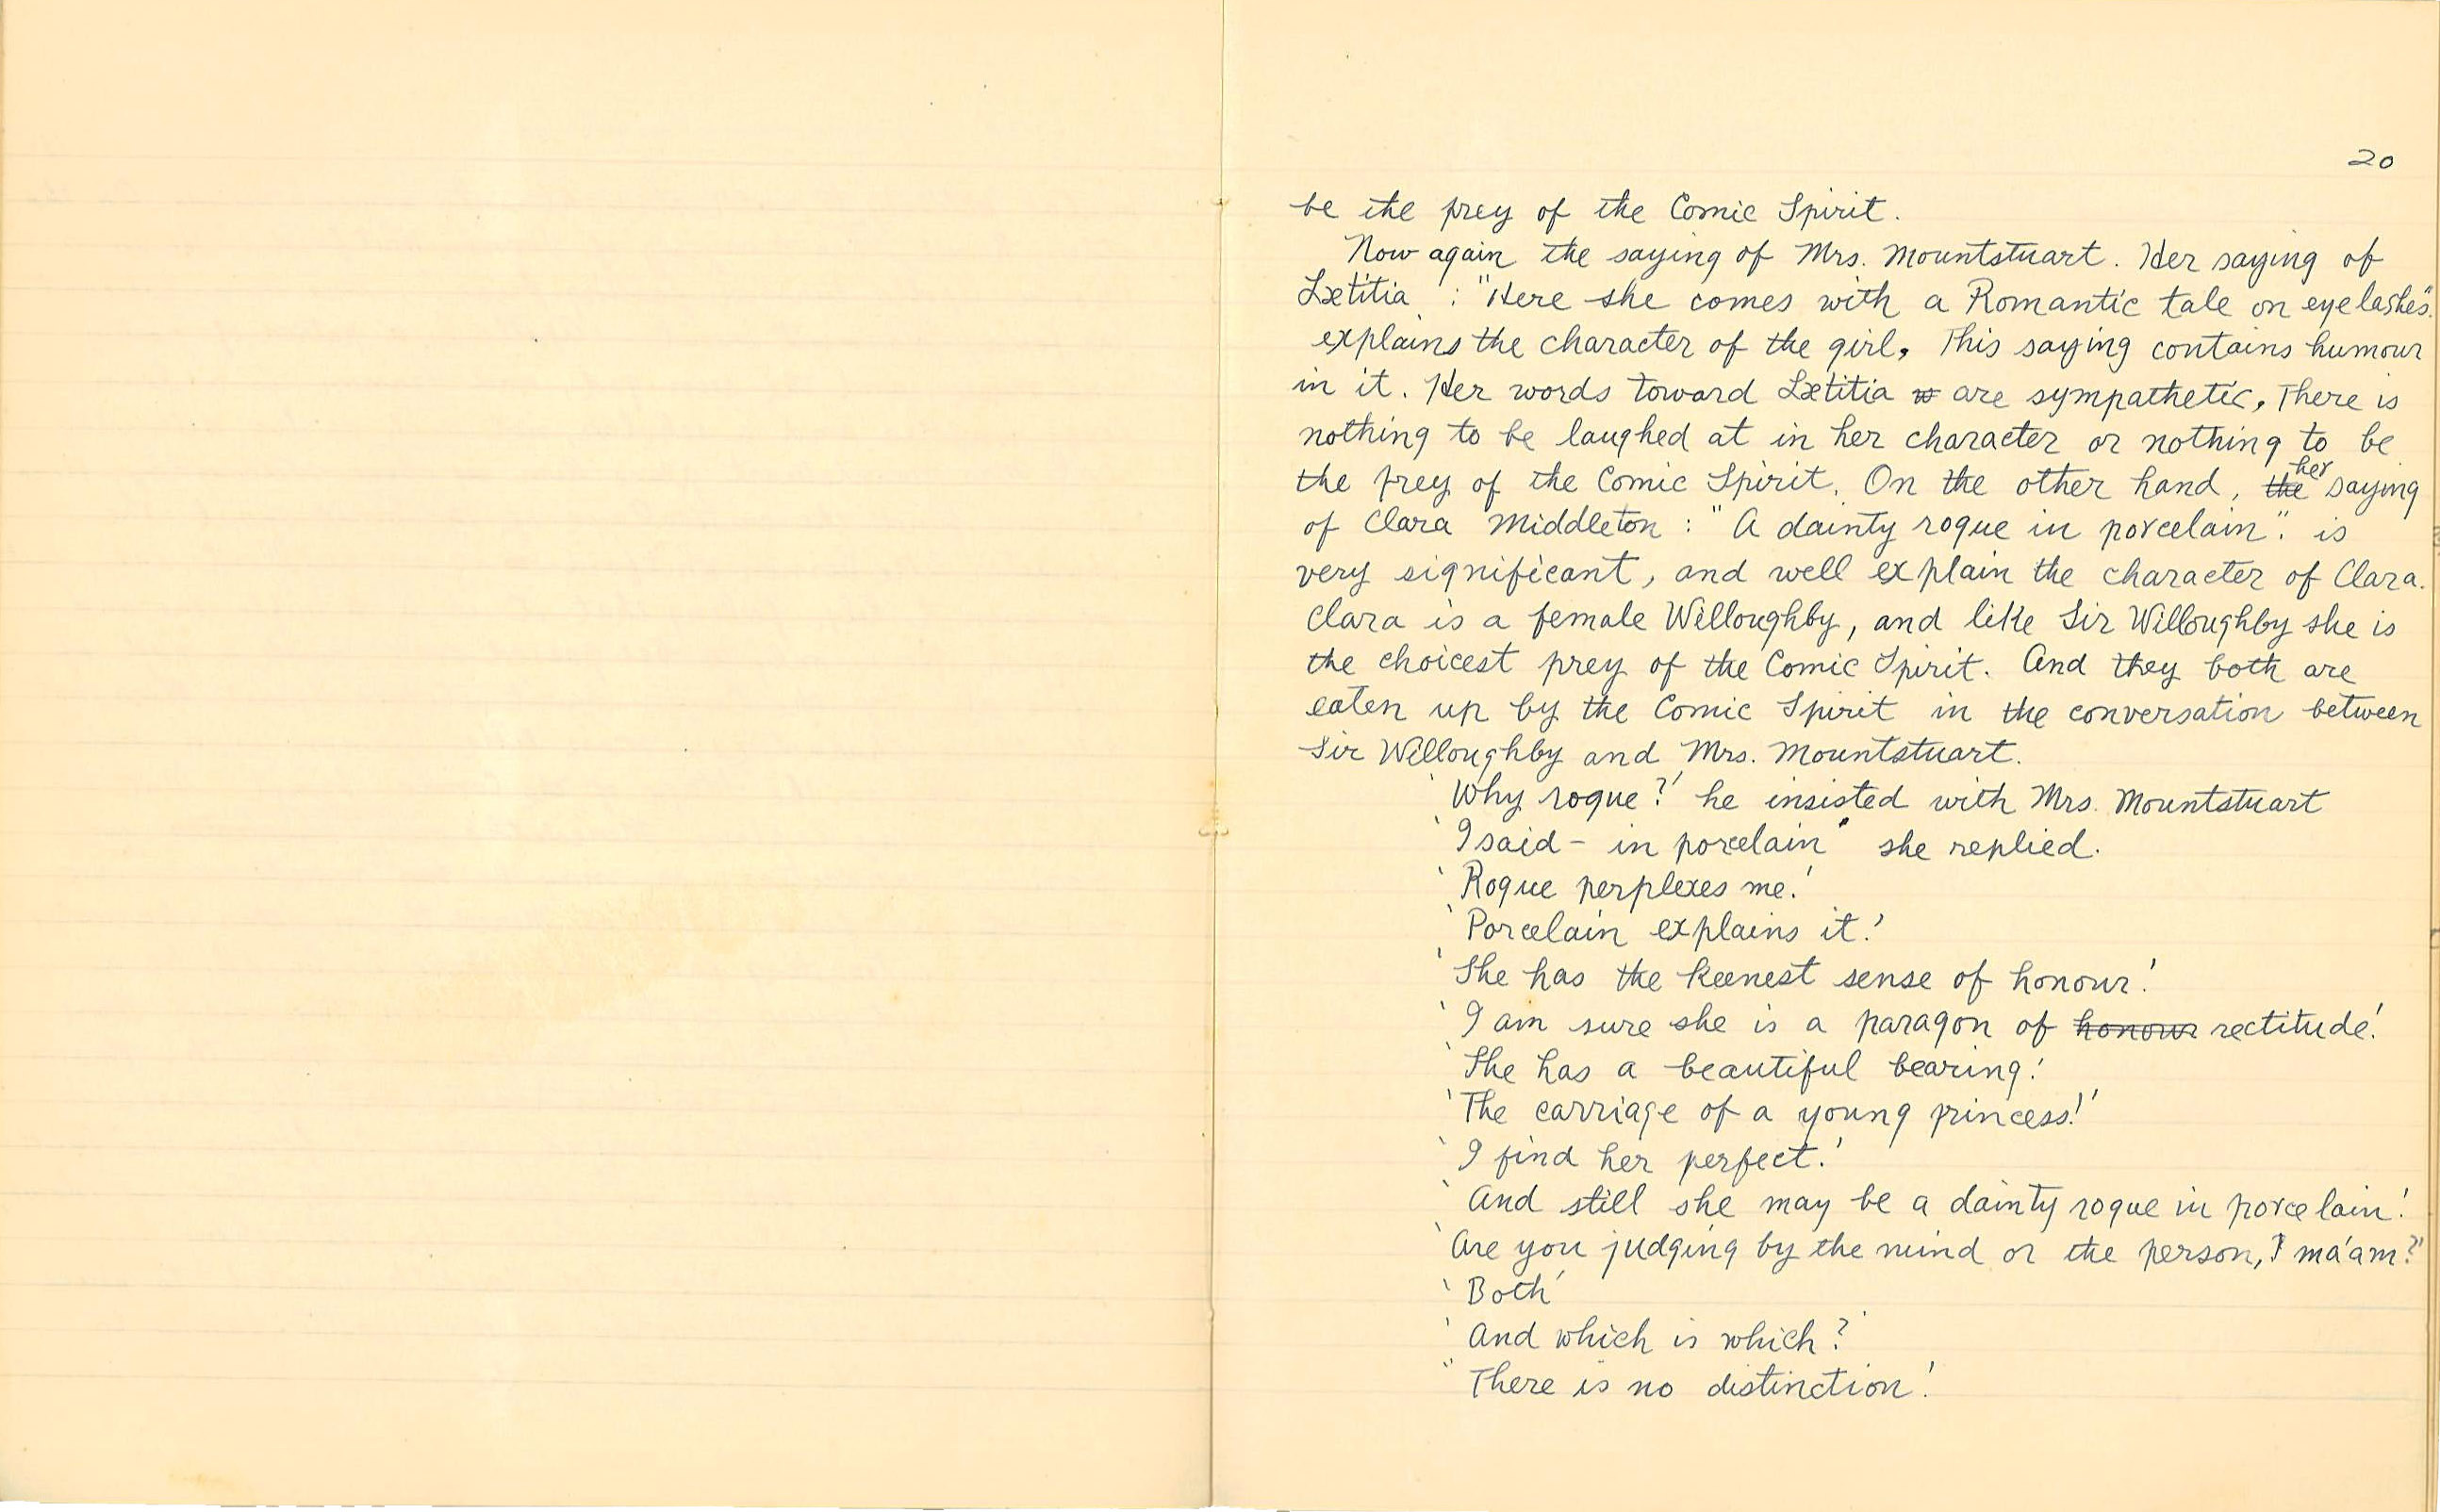 20
be the prey of the Comic Spirit.
Now again the saying of Mrs. Mountstuart. Her saying of
Lætitia : "Here she comes with a Romantic tale on eyelashes".
explains the character of the girl. This saying contains humour
in it. Her words toward Lætitia are sympathetic. There is
nothing to be laughed at in her character or nothing to be
the prey of the Comic Spirit. On the other hand, the her saying
of Clara Middleton : "A dainty rogue in porcelain". is
very significant, and well explain the character of Clara.
Clara is a female Willoughby, and like Sir Willoughby she is
the choicest prey of the Comic Spirit. And they both are
eaten up by the Comic Spirit in the conversation between
Sir Willoughby and Mrs. Mountstuart.
'Why rogue?' he insisted with Mrs. Mountstuart
'I said - in porcelain' she replied.
'Rogue perplexes me.'
'Porcelain explains it.'
'She has the keenest sense of honour.'
'I am sure she is a paragon of honour rectitude.'
'She has a beautiful bearing.'
'The carriage of a young princess!'
'I find her perfect.'
'And still she may be a dainty rogue in porcelain.'
'Are you judging by the mind or the person, ma'am?'
'Both'
'And which is which?'
"There is no distinction.'